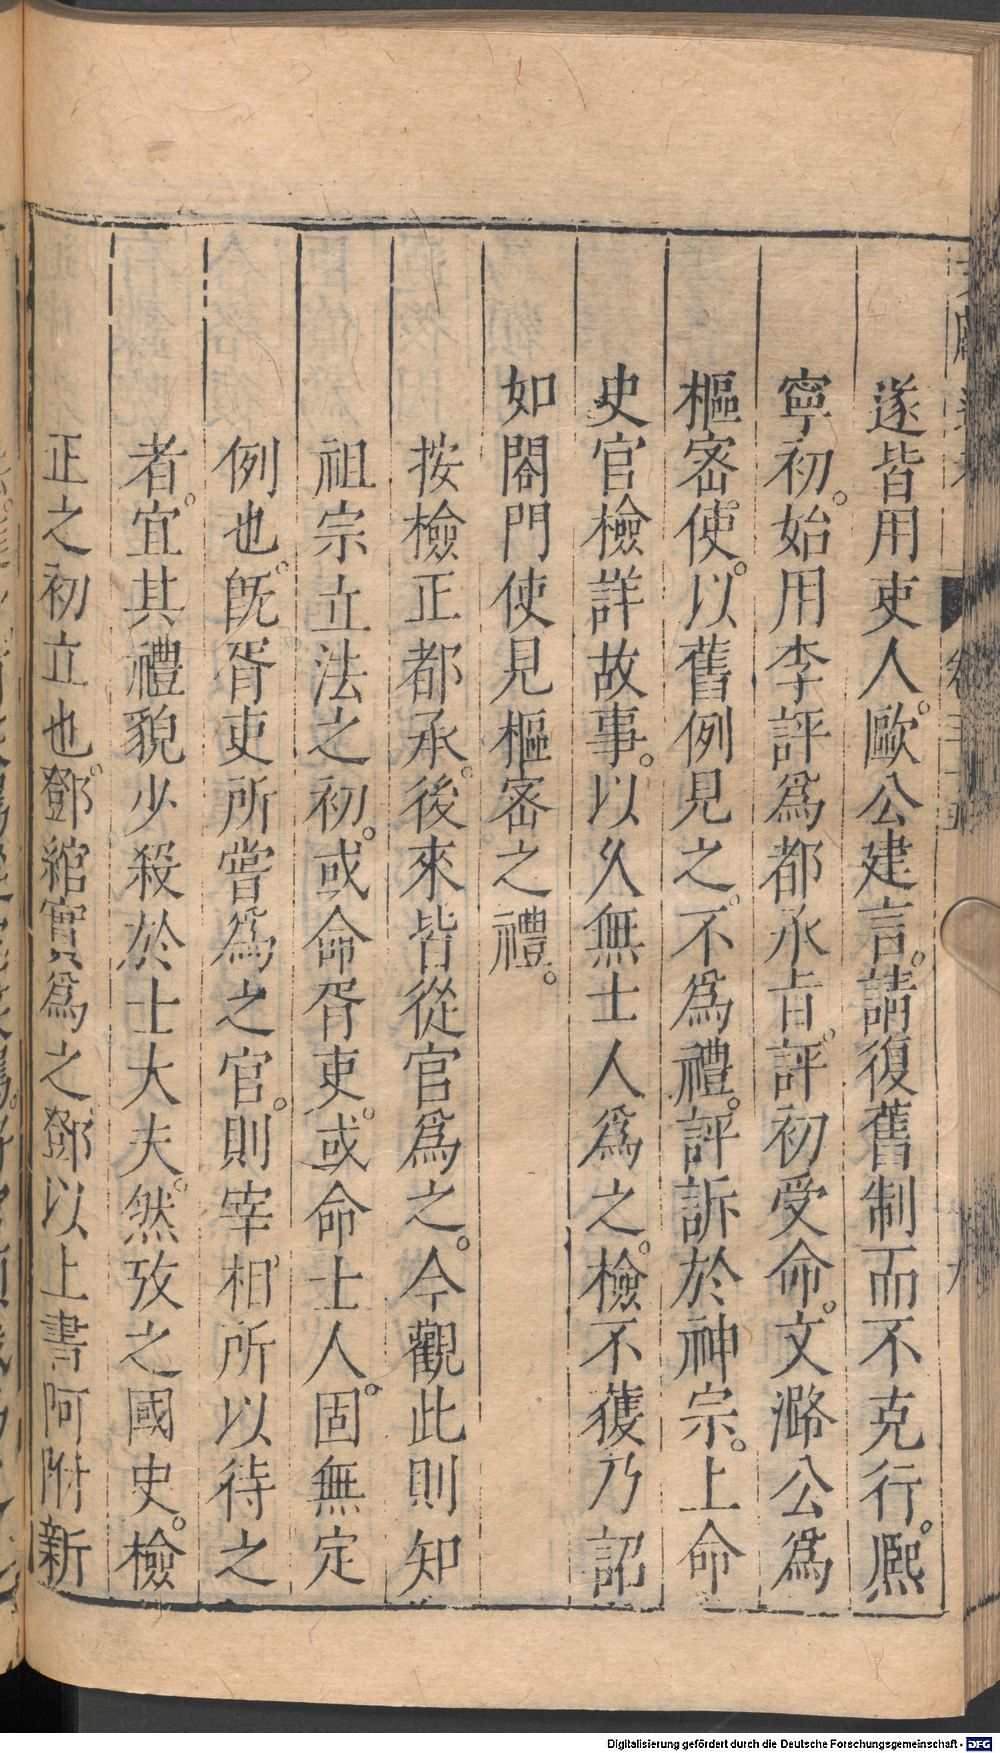 遂皆用吏人。歐公建言。請復舊制而不克行。熙
寧初。始用李評爲都承旨。評初受命。文潞公爲
樞密使。以舊例見之。不爲禮。評訴於神宗。上命
史官檢詳故事。以久無士人爲之。檢不獲乃詔
如閤門使見樞密之禮。
按檢正都承。後來皆從官爲之。今觀此則知
祖宗立法之初。或命胥吏。或命士人。固無定
例也。旣胥吏所嘗爲之官。則宰相所以待之
者。宜其禮貌少殺於士大夫。然攷之國史。檢
正之初立也。鄧綰實爲之鄧以上書阿附新
Digitalisierung gefördert durch die Deutsche Forschungsgemeinschaft - DFG